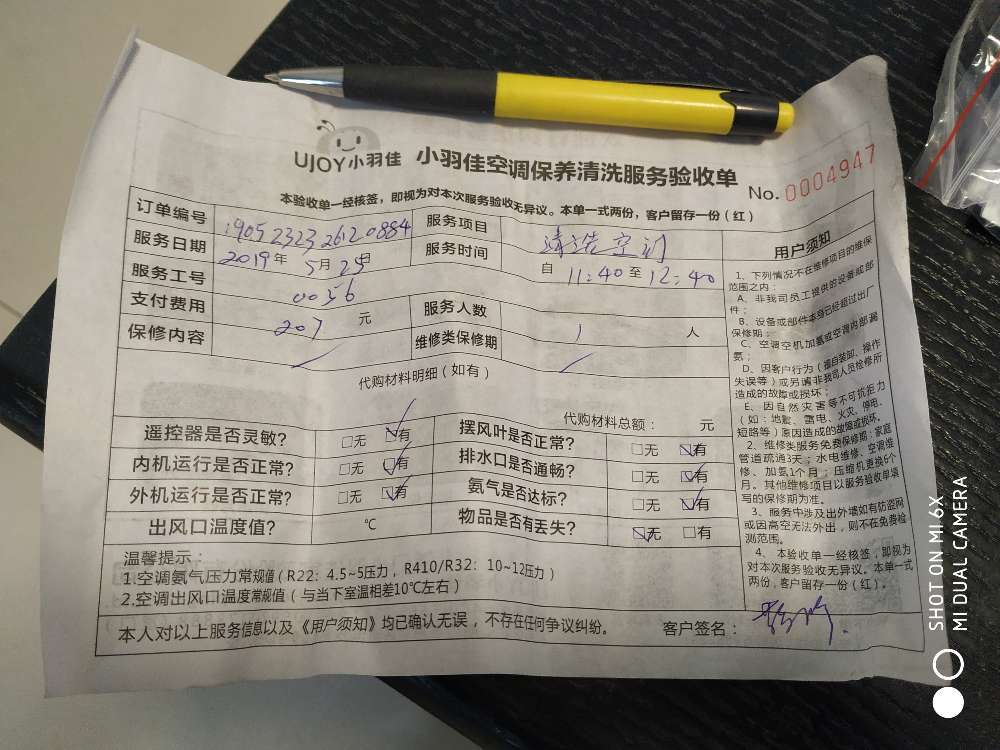 UJOY小羽佳 小羽佳空调保养清洗服务验收单 No. 0004947
本验收单一经核签，即视为对本次服务验收无异议。本单一式两份，客户留存一份（红）
订单编号 1905232326120884 服务项目 清洗空调
服务日期 2019年5月25日 服务时间 自 11:40 至 12:40
服务工号 0056
支付费用 207 元 服务人数 1 人
保修内容 维修类保修期
代购材料明细（如有）
代购材料总额： 元
遥控器是否灵敏？ □无 ☑有 摆风叶是否正常？ □无 ☑有
内机运行是否正常？ □无 ☑有 排水口是否通畅？ □无 ☑有
外机运行是否正常？ □无 ☑有 氨气是否达标？ □无 ☑有
出风口温度值？ ℃ 物品是否有丢失？ ☑无 □有
温馨提示：
1.空调氨气压力常规值（R22：4.5~5压力，R410/R32：10~12压力）
2.空调出风口温度常规值（与当下室温相差10℃左右）
本人对以上服务信息以及《用户须知》均已确认无误，不存在任何争议纠纷。 客户签名：
用户须知
1、下列情况不在维修项目的维保
范围之内：
A、非我司员工提供的设备或部
件；
B、设备或部件本身已经超过出厂
保修期；
C、空调空机加氨或空调内部漏
氨；
D、因客户行为（擅自装卸、操作
失误等）或另请非我司人员检修所
造成的故障或损坏；
E、因自然灾害等不可抗拒力
（如：地震、雷电、火灾、停电、
短路等）原因造成的故障或损坏。
2、维修类服务免费保修期：家庭
管道疏通3天；水电维修、空调维
修、加氨1个月；压缩机更换6个
月。其他维修项目以服务验收单填
写的保修期为准。
3、服务中涉及出外墙如有防盗网
或因高空无法外出，则不在免费检
测范围。
4、本验收单一经核签，即视为
对本次服务验收无异议。本单一式
两份，客户留存一份（红）。
SHOT ON MI 6X
MI DUAL CAMERA